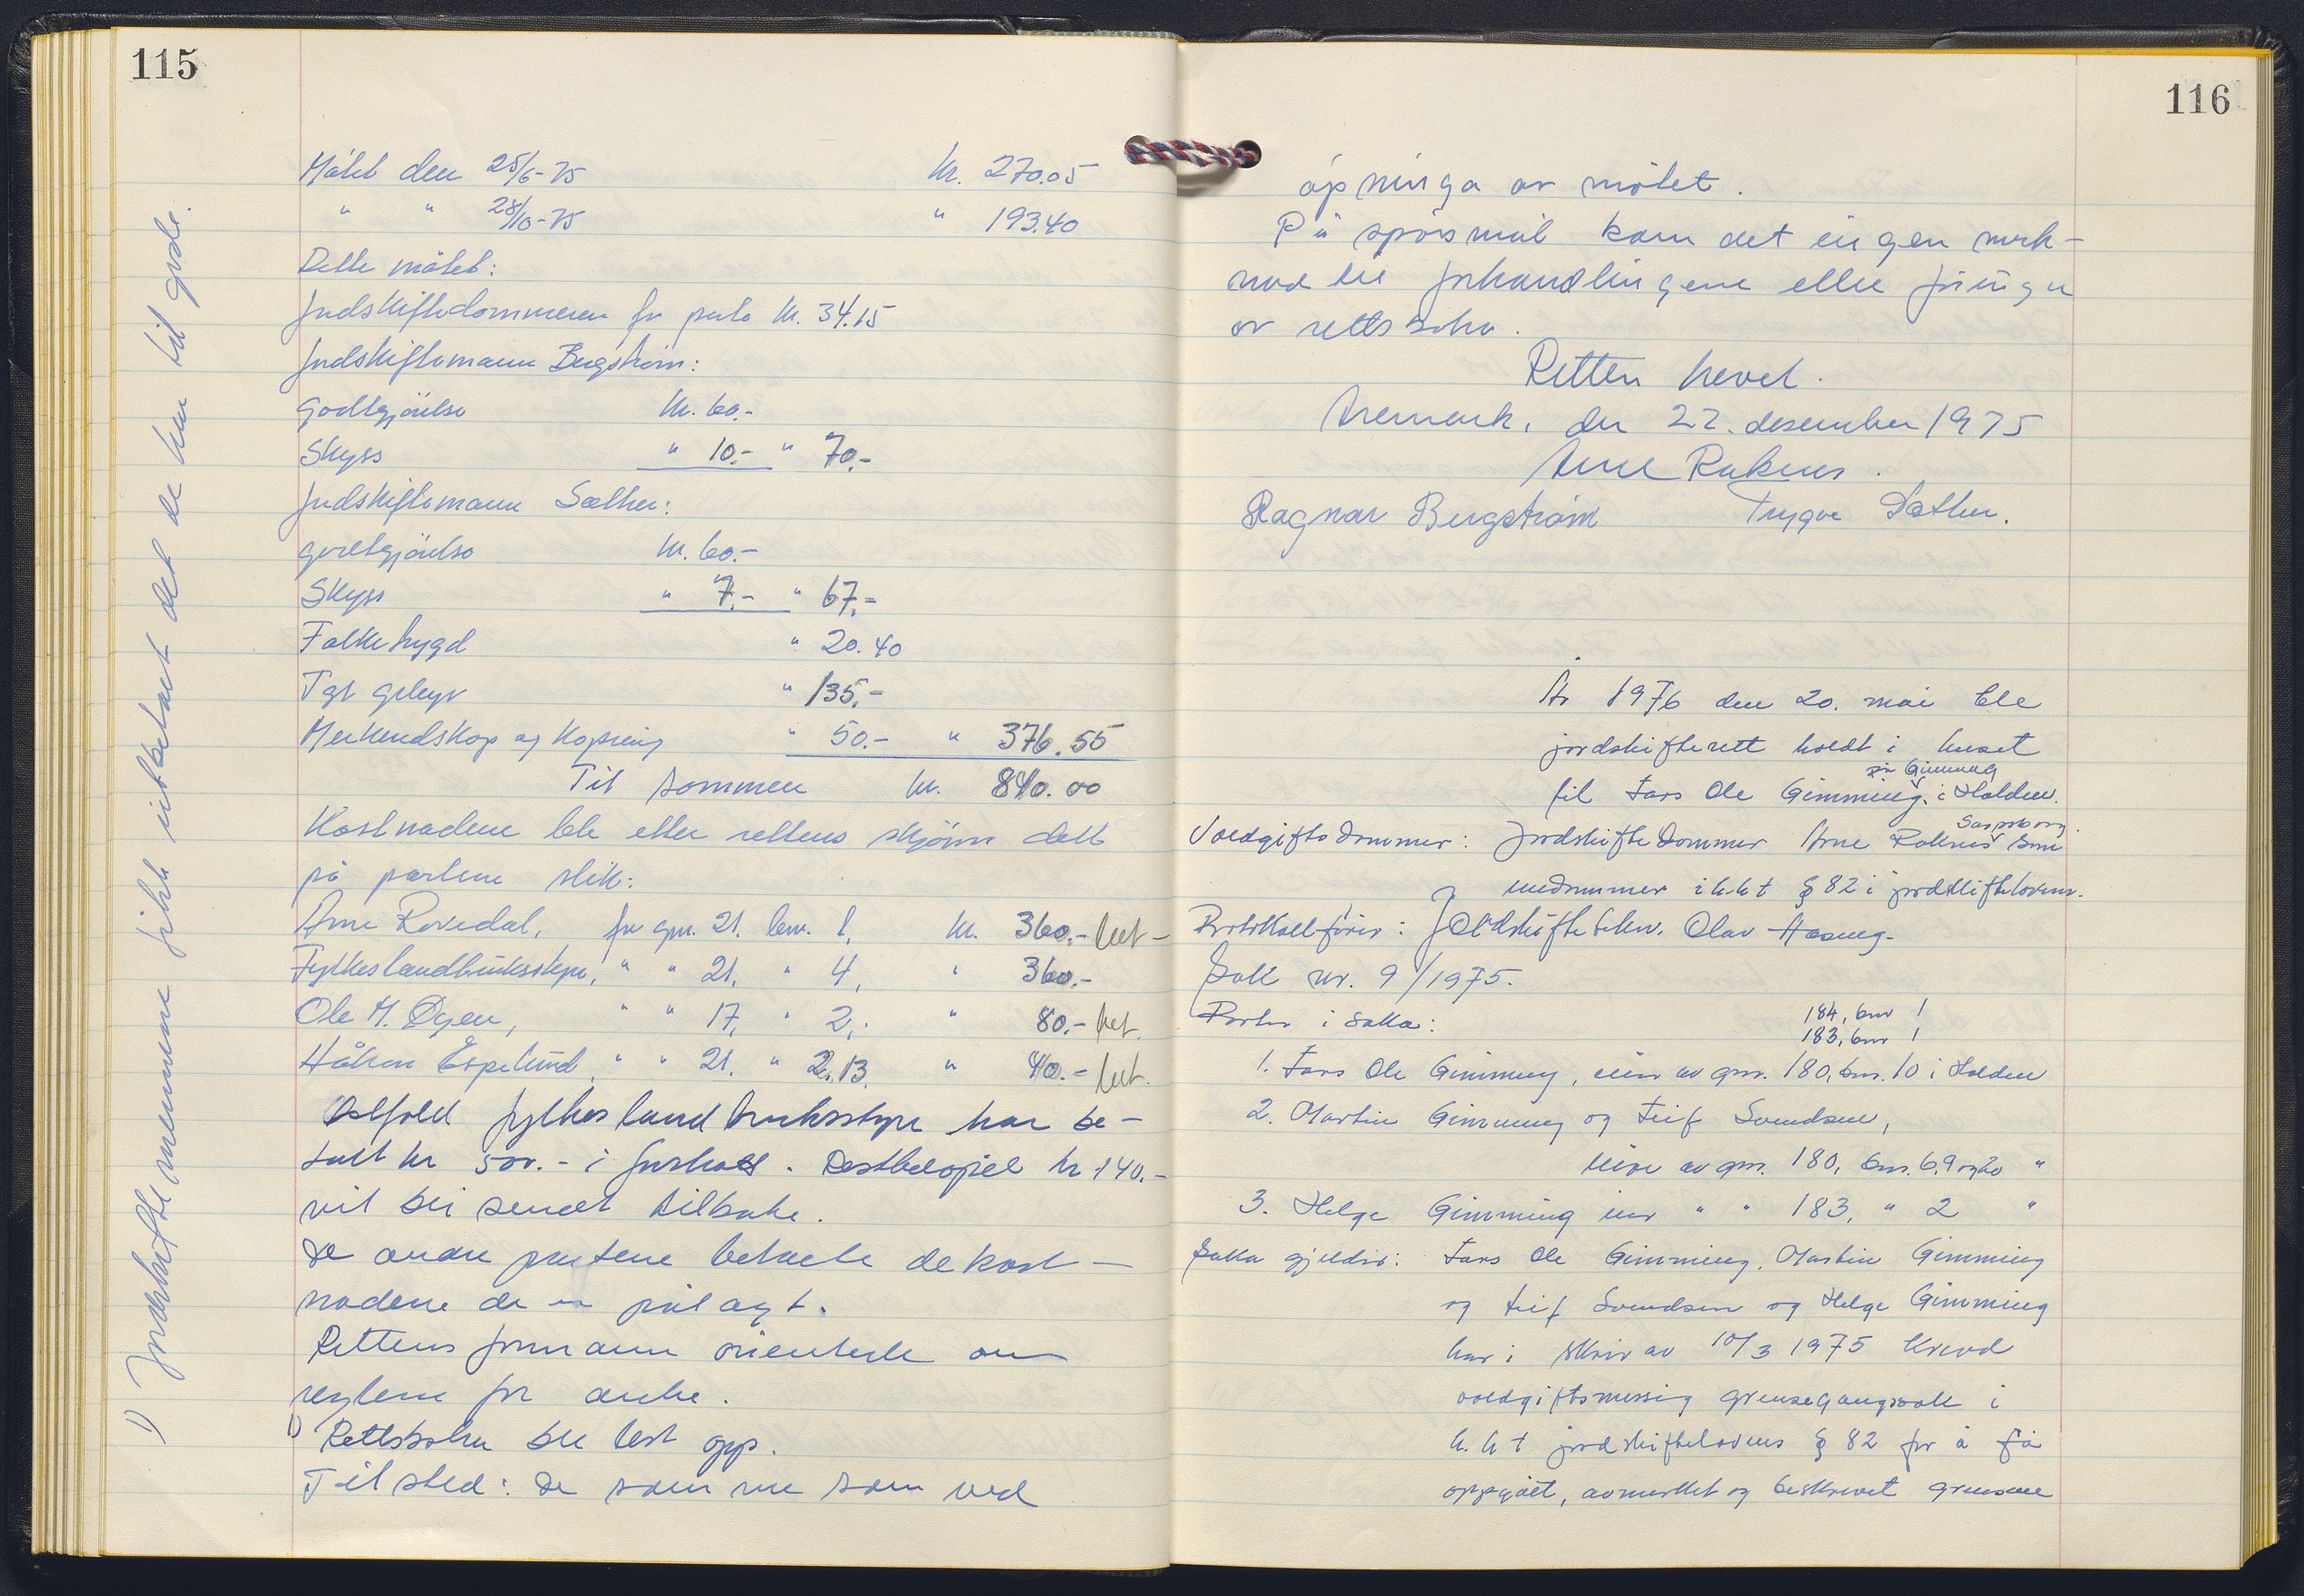 115
Møtet den 25/6-75 kr. 270.05
" " 28/10-75 " 193.40
Dette møtet:
Jordskiftedommeren for porto kr. 34.15
Jordskiftemann Bergstrøm:
godtgjørelse kr. 60.-
Skyss " 10.- " 70.-
Jordskiftemann Sæther:
godtgjørelse kr. 60.-
Skyss " 7.- " 67.-
Folketrygd " 20.40
Tgl gebyr " 135.-
Merkeredskap og kopiering " 50.- " 376.55
Til sammen kr. 840.00
Kostnadene ble etter rettens skjønn delt
på partene slik:
Arne Rovedal, for gnr. 21. bnr. 1, kr. 360.- bet.
Fylkeslandbruksstyre, " " 21. " 4, " 360.-
Ole M. Øyen, " " 17, " 2, " 80.- bet.
Håkon Espelund, " " 21. " 2.13. " 40.- bet.
Østfold fylkeslandbruksstyre har be-
talt kr 500.- i forskott. Restbeløpet kr 140.-
vil bli sendt tilbake.
De andre partene betalte de kost-
nadene de er pålagt.
Rettens formann orienterte om
reglene for anke.
1) Rettsboka ble lest opp.
Tilsted: De samme som ved
1) Jordskiftemennene fikk utbetalt det de har til gode.
116
åpninga av møtet.
På spørsmål kom det ingen merk-
nad til forhandlingene eller føringa
av rettsboka.
Retten hevet.
Aremark, den 22. desember 1975
Arne Raknes.
Ragnar Bergstrøm Trygve Sæther.
År 1976 den 20. mai ble
jordskifterett holdt i huset
på Gimming
til Lars Ole Gimming, i Halden.
Sarpsborg
Voldgiftsdommer: Jordskiftedommer Arne Raknes som
enedommer i h.h.t § 82 i jordskifteloven.
Protokollfører: Jordskiftetekn. Olav Haaheim.
Sak nr. 9/1975.
Parter i saka: 184, bnr 1
183, bnr 1
1. Lars Ole Gimming, eier av gnr. 180, bnr. 10 i Halden
2. Martin Gimming og Leif Svendsen,
eiere av gnr. 180, bnr. 6.9 og 20 "
3. Helge Gimming eier " " 183, " 2 "
Saka gjelder: Lars Ole Gimming, Martin Gimming
og Leif Svendsen og Helge Gimming
har i skriv av 10/3 1975 krevd
voldgiftsmessig grensegangssak i
h.h.t jordskiftelovens § 82 for å få
oppgått, avmerket og beskrevet grensene